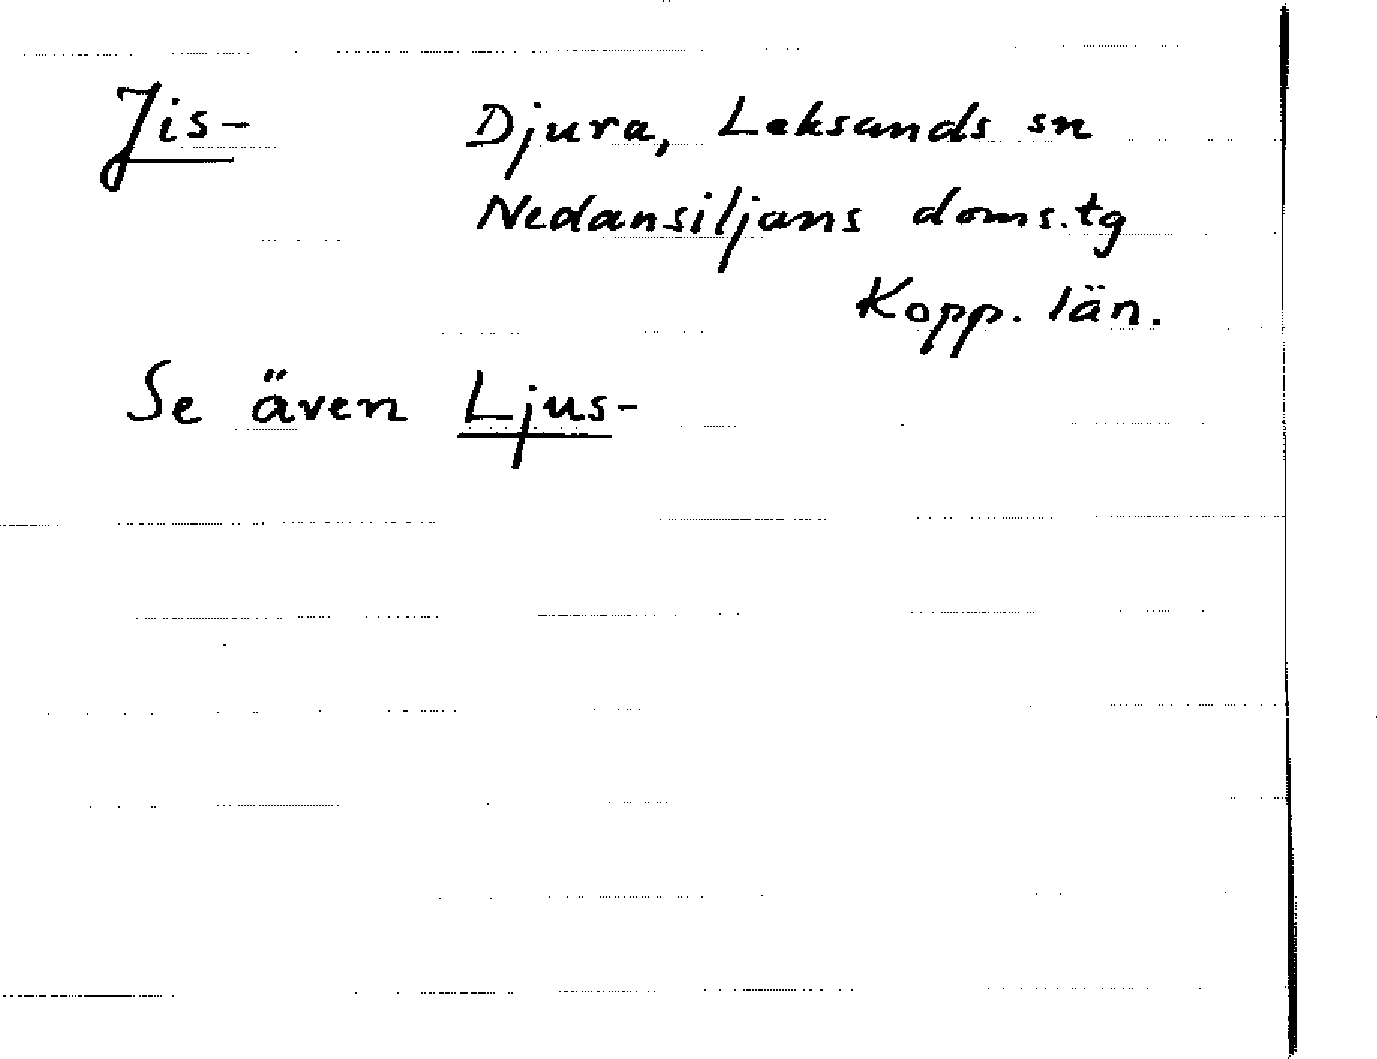 Jis- Djura, Leksands sn
Nedansiljans doms.tg
Kopp. län.
Se även Ljus-